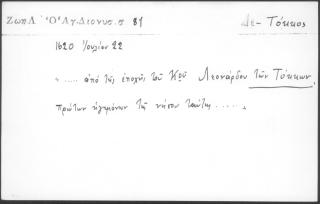 Ζωπλ. Ὁ Ἁγ. Διονυσ. σ 81
Δε - Τόκκος
1620 Ἰουλίου 22
« ..... ἀπό τῆς ἐποχῆς τοῦ Κου Λεονάρδου τῶν Τόκκων,
πρώτων ἡγεμόνων τῆς νήσου ταύτης ......